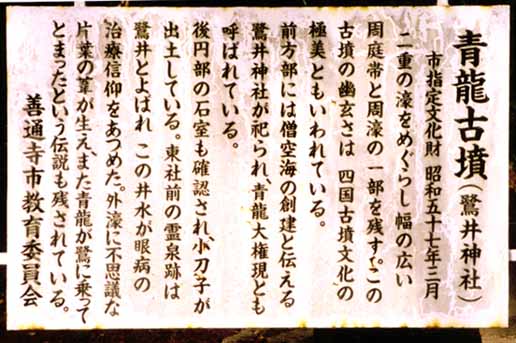 青龍古墳（鷺井神社）
市指定文化財 昭和五十七年三月
二重の濠をめぐらし幅の広い
周庭帯と周濠の一部を残す。この
古墳の幽玄さは 四国古墳文化の
極美ともいわれている。
前方部には僧空海の創建と伝える
鷺井神社が祀られ、青龍大権現とも
呼ばれている。
後円部の石室も確認され、小刀子が
出土している。東社前の霊泉跡は
鷺井とよばれ この井水が眼病の
治療信仰をあつめた。外濠に不思議な
片葉の葦が生え、また青龍が鷺に乗って
とまったという伝説も残されている。
善通寺市教育委員会